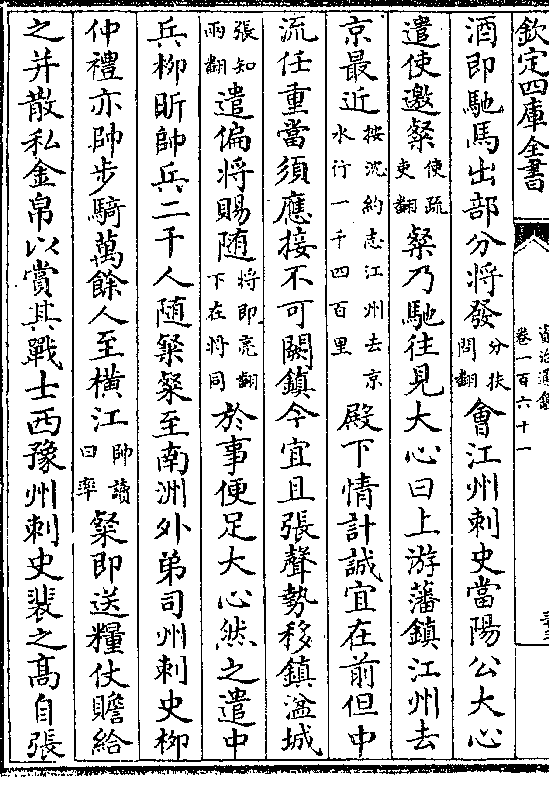 欽定四庫全書
資治通鑑
卷一百六十一
酒即馳馬出部分將發分扶問翻會江州刺史當陽公大心
遣使邀粲使疏吏翻粲乃馳往見大心曰上游藩鎮江州去
京最近按沈約志江州去京水行一千四百里殿下情計誠宜在前但中
流任重當須應接不可闕鎮今宜且張聲勢移鎮湓城
張知兩翻遣偏將賜隨將即亮翻下在將同於事便足大心然之遣中
兵柳昕帥兵二千人隨粲粲至南洲外弟司州刺史柳
仲禮亦帥步騎萬餘人至橫江帥讀曰率粲即送糧仗贍給
之并散私金帛以賞其戰士西豫州刺史裴之髙自張